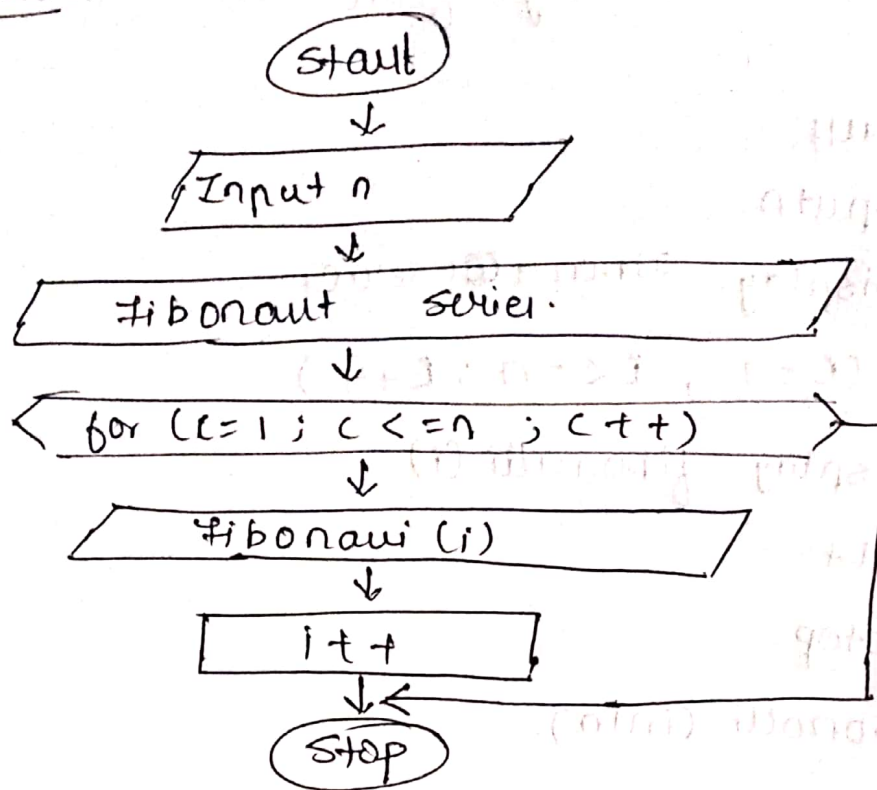 Start
Input n
Fibonacci series.
for (c=1; c<=n ; c++)
Fibonacci (i)
i++
Stop